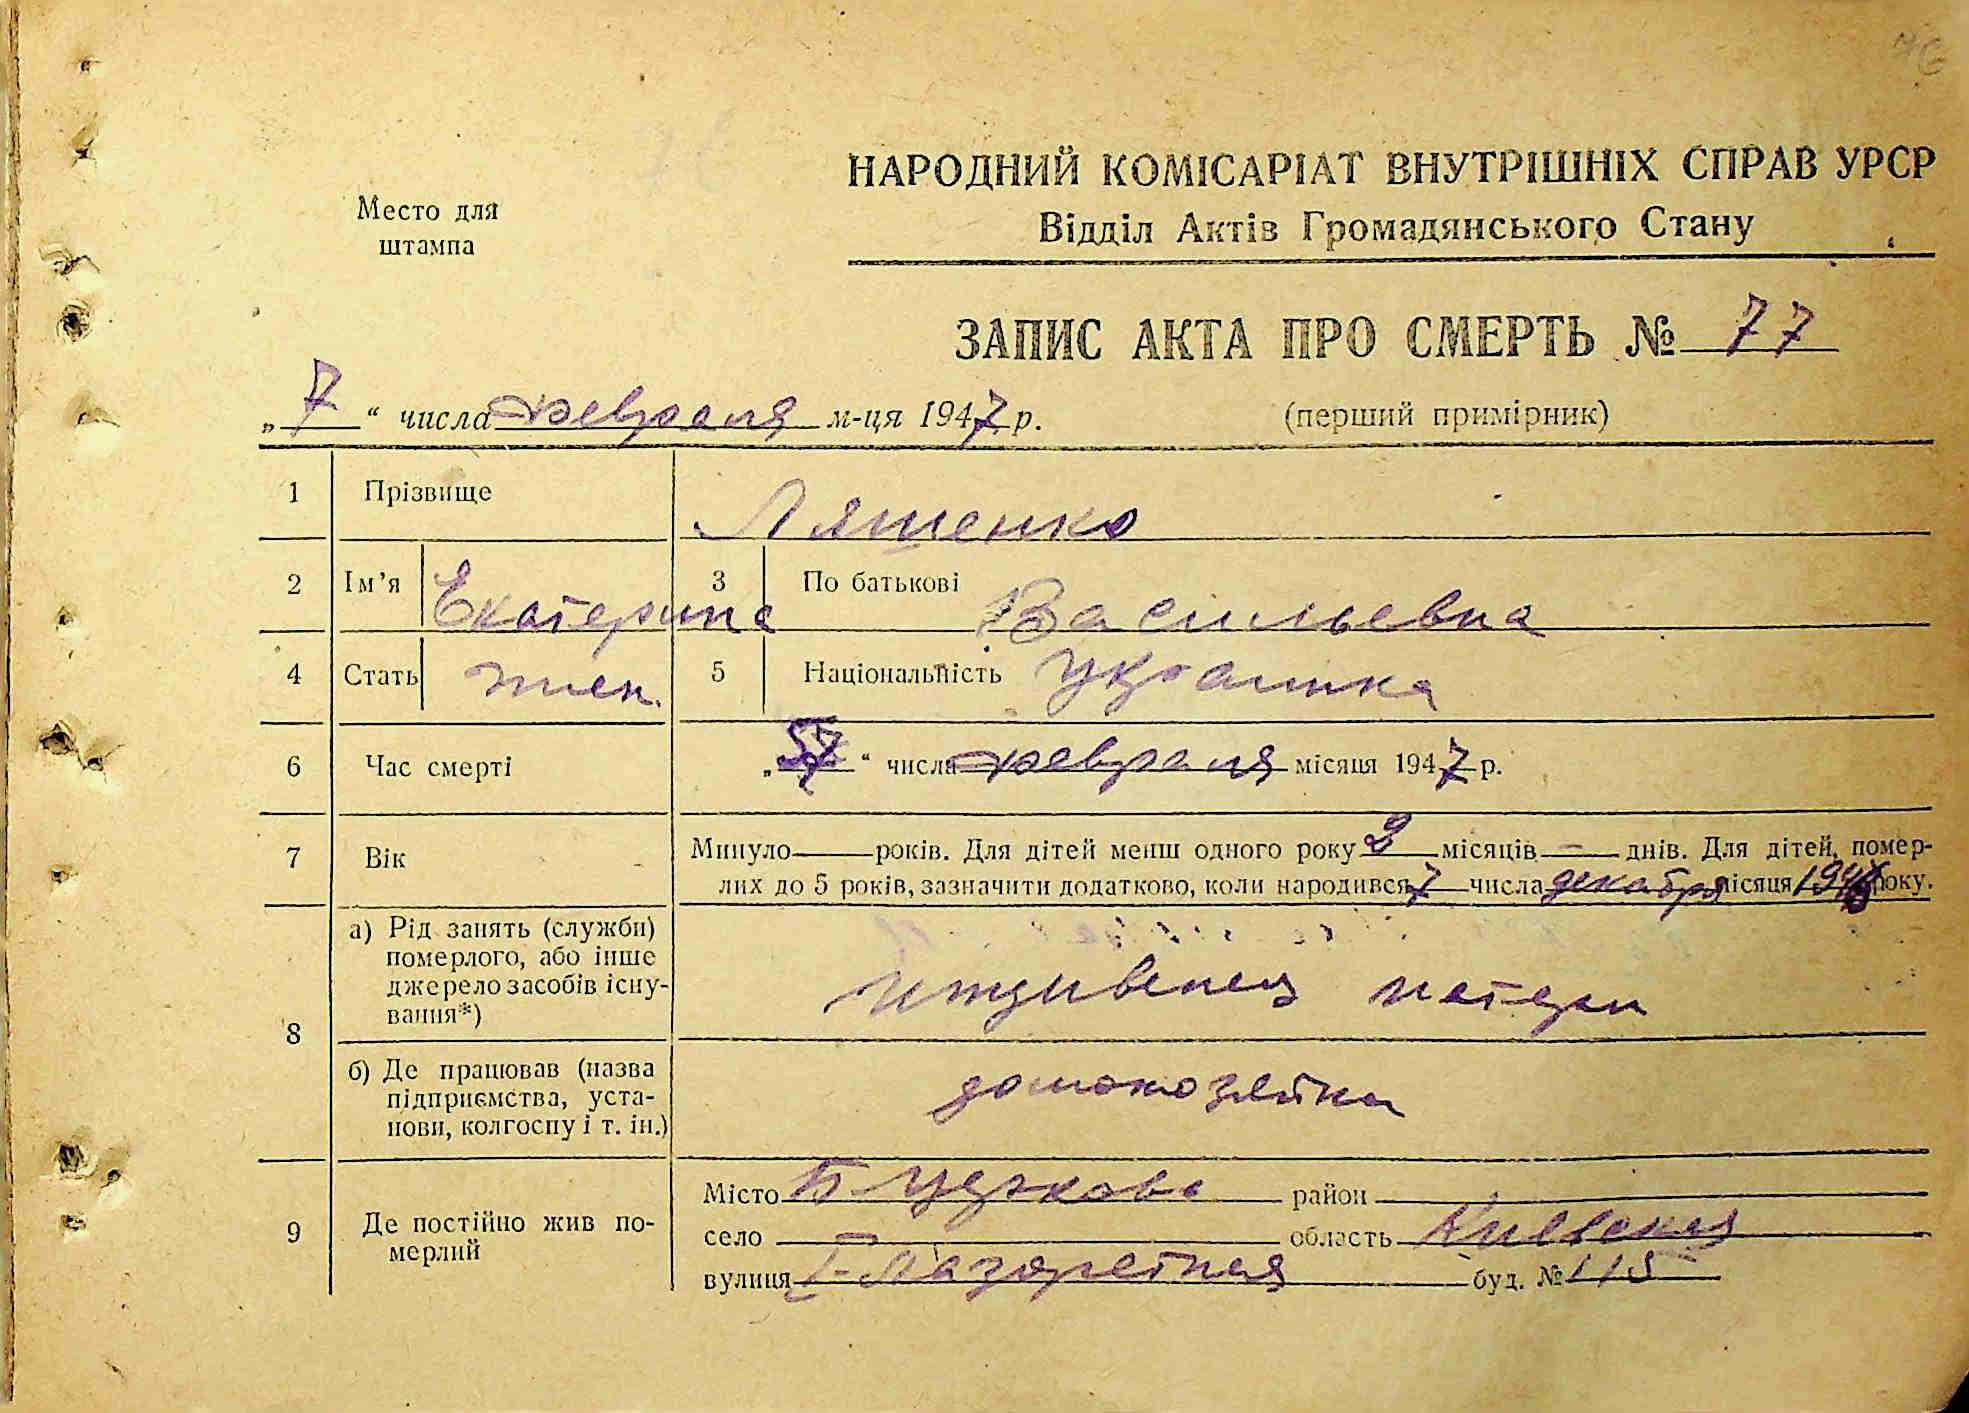 76
Место для
штампа
НАРОДНИЙ КОМІСАРІАТ ВНУТРІШНІХ СПРАВ УРСР
Відділ Актів Громадянського Стану
ЗАПИС АКТА ПРО СМЕРТЬ № 77
„ 7 “ числа февраля м-ця 1947 р. (перший примірник)
1 Прізвище Ляшенко
2 Ім’я Екатерина 3 По батькові Васильевна
4 Стать жен. 5 Національність украинка
6 Час смерті „ “ числа февраля місяця 1947 р.
7 Вік Минуло — років. Для дітей менш одного року 2 місяців — днів. Для дітей, помер-
лих до 5 років, зазначити додатково, коли народився 7 числа декабря місяця 1946 року.
8 а) Рід занять (служби)
померлого, або інше
джерело засобів існу-
вання*)
иждивенец матери
б) Де працював (назва
підприємства, уста-
нови, колгоспу і т. ін.)
домохозяйка
9 Де постійно жив по-
мерлий
Місто район
село область Киевская
вулиця І-Лазаретная буд. № 115